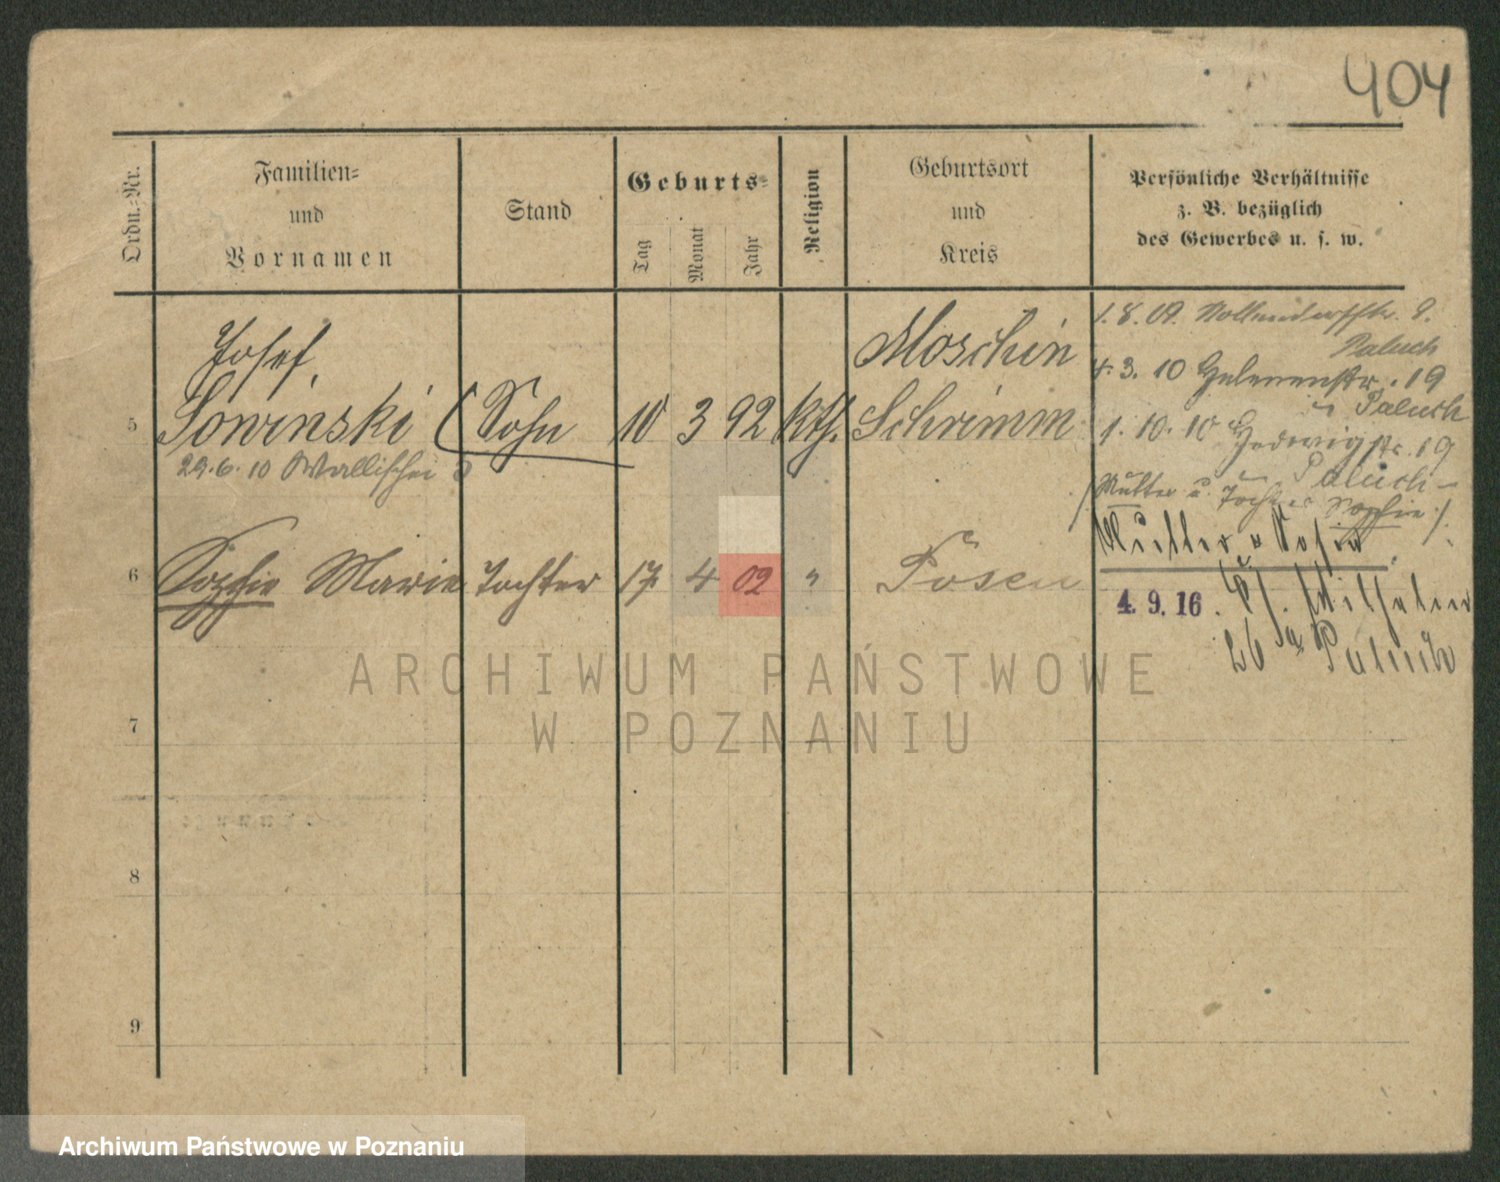 404
Ordn.-Nr.
Familien-
und
Vornamen
Stand
Geburts-
Tag
Monat
Jahr
Religion
Geburtsort
und
Kreis
Persönliche Verhältnisse
z. B. bezüglich
des Gewerbes u. s. w.
5
Josef,
Sowinski ( Sohn 10 3 92 kth.
29.6.10 Wallischei 3
Moschin
Schrimm
1. 8. 09.
Paluch
4. 3. 10 Helenenstr. 19
Paluch
1. 10. 10 Hedwigstr. 19
Paluch
(Mutter u. Tochter Sophie)
Mutter u Sofie
4. 9. 16. Wilhelm
26 Paluch
6 Sophie Marie Tochter 17 4 02 " Posen
7
8
9
ARCHIWUM PAŃSTWOWE
W POZNANIU
Archiwum Państwowe w Poznaniu